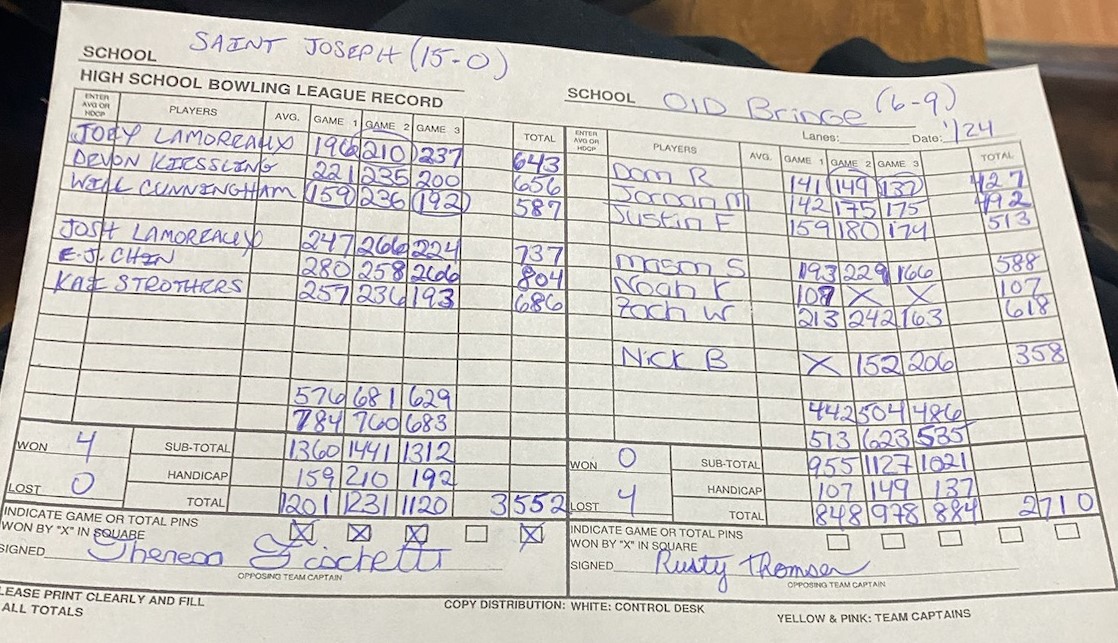 SCHOOL SAINT JOSEPH (15-0)
HIGH SCHOOL BOWLING LEAGUE RECORD
ENTER AVG OR HDCP PLAYERS AVG. GAME 1 GAME 2 GAME 3 TOTAL
JOEY LAMOREAUX 196 210 237 643
DEVON KIESSLING 221 235 200 656
WILL CUNNINGHAM 159 236 192 587
JOSH LAMOREAUX 247 266 224 737
E.J. CHIN 280 258 266 804
KAI STROTHERS 257 236 193 686
576 681 629
784 760 683
WON 4 SUB-TOTAL 1360 1441 1312
HANDICAP 159 210 192
LOST 0 TOTAL 1201 1231 1120 3552
INDICATE GAME OR TOTAL PINS
WON BY "X" IN SQUARE X X X X
SIGNED
OPPOSING TEAM CAPTAIN
SCHOOL OlD Bringe (6-9)
Lanes: Date: 1/24
ENTER AVG OR HDCP PLAYERS AVG. GAME 1 GAME 2 GAME 3 TOTAL
Dom R 141 149 137 427
Jordan M 142 175 175 492
Justin F 159 180 174 513
Mason S 193 229 166 588
Noah K 107 X X 107
Zach W 213 242 163 618
Nick B X 152 206 358
442 504 486
513 623 535
WON 0 SUB-TOTAL 955 1127 1021
HANDICAP 107 149 137
LOST 4 TOTAL 848 978 884 2710
INDICATE GAME OR TOTAL PINS
WON BY "X" IN SQUARE
SIGNED Rusty Thomsen
OPPOSING TEAM CAPTAIN
LEASE PRINT CLEARLY AND FILL
ALL TOTALS
COPY DISTRIBUTION: WHITE: CONTROL DESK
YELLOW & PINK: TEAM CAPTAINS